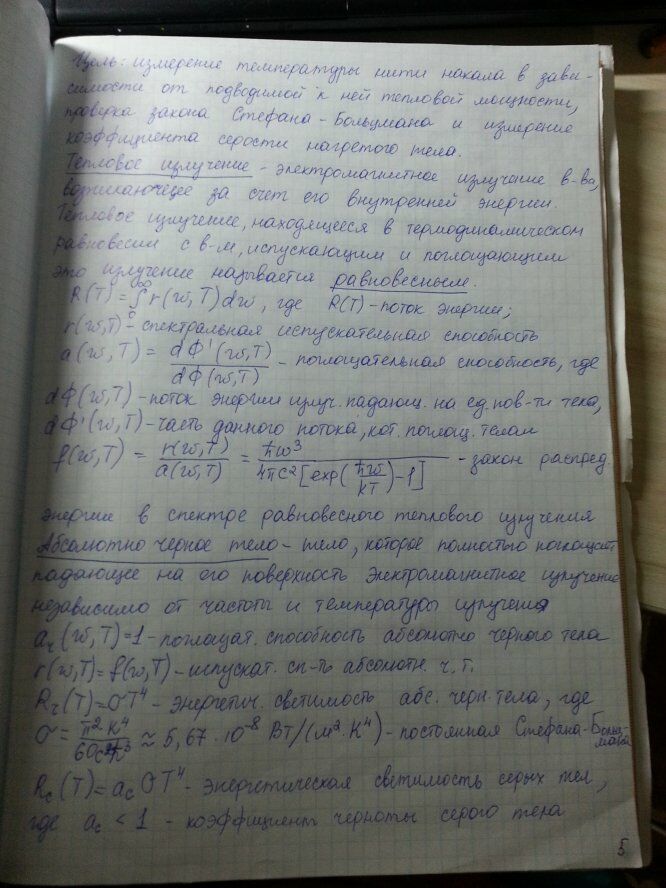 Цель: измерение температуры нити накала в зави-
симости от подводимой к ней тепловой мощности,
проверка закона Стефана-Больцмана и измерение
коэффициента серости нагретого тела.
Тепловое излучение - электромагнитное излучение в-ва,
возникающее за счет его внутренней энергии.
Тепловое излучение, находящееся в термодинамическом
равновесии с в-м, испускающим и поглощающим
это излучение называется равновесным.
R(T) = ∫₀^∞ r(ω,T)dω, где R(T)-поток энергии;
r(ω,T) - спектральная испускательная способность
a(ω,T) = dФ'(ω,T)/dФ(ω,T) - поглощательная способность, где
dФ(ω,T) - поток энергии излуч. падающ. на ед. пов-ти тела,
dФ'(ω,T) - часть данного потока, кот. поглощ. телом
f(ω,T) = r(ω,T)/a(ω,T) = ħω³/4πc²[exp(ħω/kT)-1] - закон распред.
энергии в спектре равновесного теплового излучения
Абсолютно черное тело - тело, которое полностью поглощает
падающее на его поверхность электромагнитное излучение
независимо от частоты и температуры излучения
aч(ω,T)=1 - поглощат. способность абсолютно черного тела
r(ω,T)=f(ω,T) - испускат. сп-ть абсолютн. ч.т.
Rч(T)=σT⁴ - энергетич. светимость абс. черн. тела, где
σ = π²k⁴/60c²ħ³ ≈ 5,67·10⁻⁸ Вт/(м²·К⁴) - постоянная Стефана-Больц-
мана
Rс(T)=aсσT⁴ - энергетическая светимость серых тел,
где aс < 1 - коэффициент черноты серого тела
5